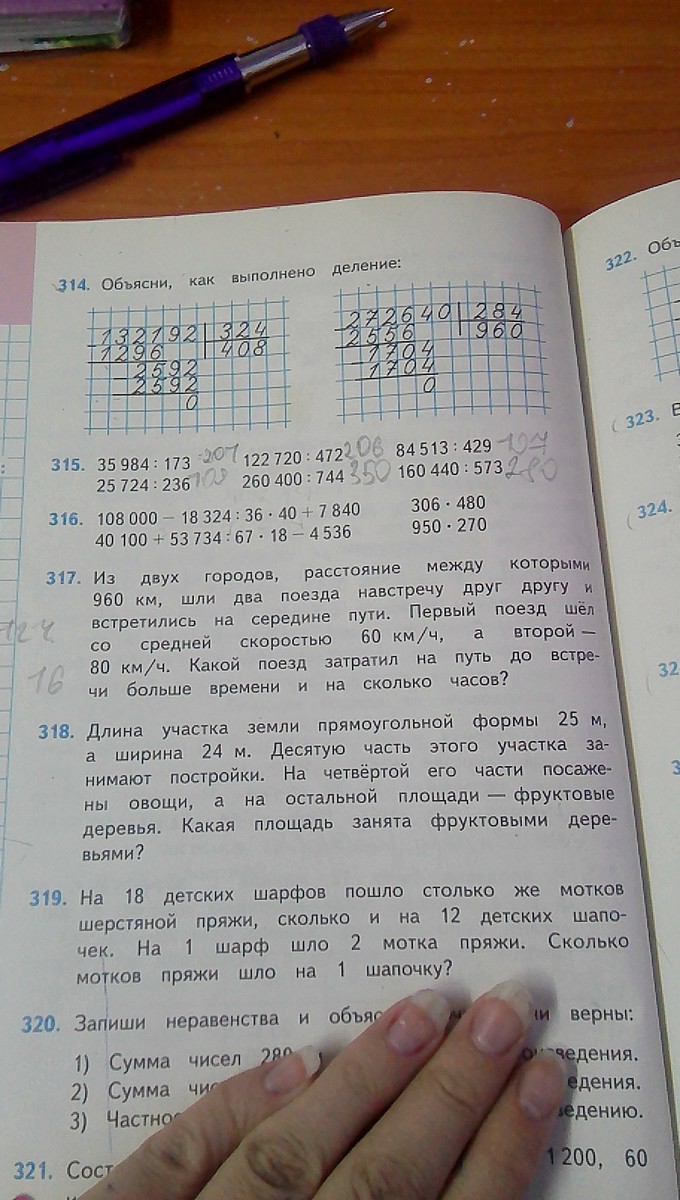 314. Объясни, как выполнено деление:
132192 324
1296 408
2592
2592
0
272640 284
2556 960
1704
1704
0
315. 35 984 : 173 122 720 : 472 206 84 513 : 429
25 724 : 236 260 400 : 744 350 160 440 : 573 280
316. 108 000 − 18 324 : 36 · 40 + 7 840 306 · 480
40 100 + 53 734 : 67 · 18 − 4 536 950 · 270
317. Из двух городов, расстояние между которыми
960 км, шли два поезда навстречу друг другу и
встретились на середине пути. Первый поезд шёл
со средней скоростью 60 км/ч, а второй —
80 км/ч. Какой поезд затратил на путь до встре-
чи больше времени и на сколько часов?
16
318. Длина участка земли прямоугольной формы 25 м,
а ширина 24 м. Десятую часть этого участка за-
нимают постройки. На четвёртой его части посаже-
ны овощи, а на остальной площади — фруктовые
деревья. Какая площадь занята фруктовыми дере-
вьями?
319. На 18 детских шарфов пошло столько же мотков
шерстяной пряжи, сколько и на 12 детских шапо-
чек. На 1 шарф шло 2 мотка пряжи. Сколько
мотков пряжи шло на 1 шапочку?
320. Запиши неравенства и верны:
1) Сумма чисел
2) Сумма
3)
321. 1 200, 60
322.
323.
324.